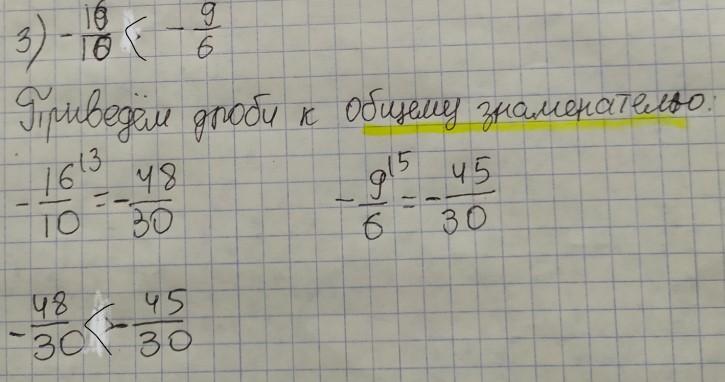 3) -16/10 < -9/6
Приведём дроби к общему знаменателю:
-16/10 \3 = -48/30    -9/6 \5 = -45/30
-48/30 < -45/30